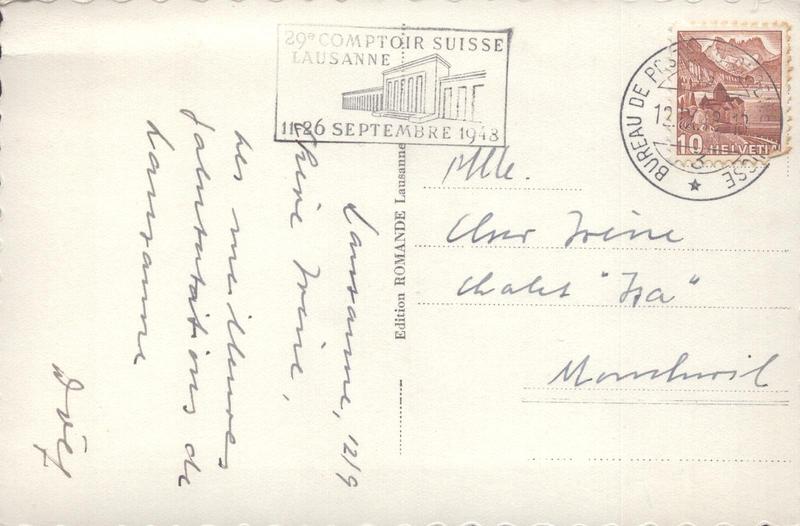 29e COMPTOIR SUISSE
LAUSANNE
11-26 SEPTEMBRE 1948
BUREAU DE POSTE
10 HELVETIA
Edition ROMANDE Lausanne
Lausanne, 12/9
Chère Irène,
Les meilleures
salutations de
Lausanne
Dölf
Mlle.
Irène
Chalet "Isa"